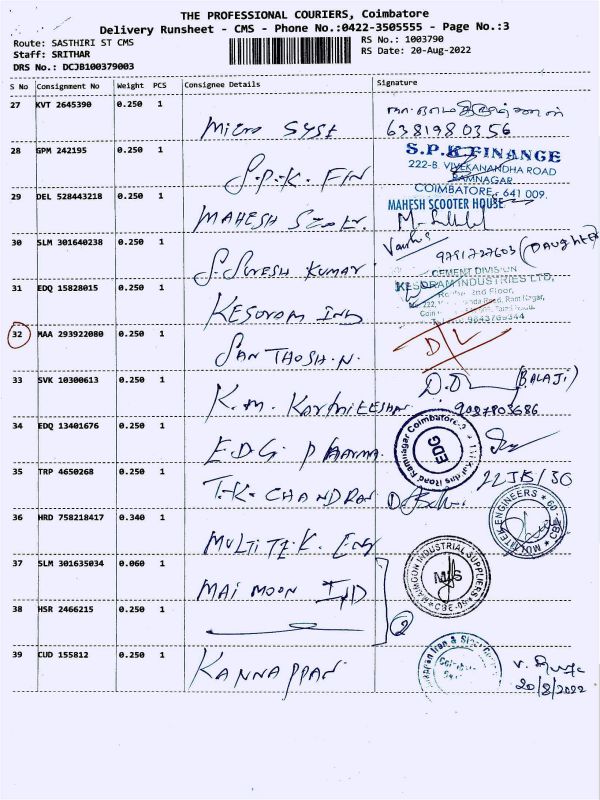 THE PROFESSIONAL COURIERS, Coimbatore
Delivery Runsheet - CMS - Phone No.:0422-3505555 - Page No.:3
Route: SASTHIRI ST CMS
Staff: SRITHAR
DRS No.: DCJB100379003
RS No.: 1003790
RS Date: 20-Aug-2022
S No Consignment No Weight PCS Consignee Details Signature
27 KVT 2645390 0.250 1
Micro SYST
6381980356
28 GPM 242195 0.250 1
S.P.K. FIN
S.P.K FINANCE
222-B, VIVEKANANDHA ROAD
RAMNAGAR,
COIMBATORE - 641 009.
29 DEL 528443218 0.250 1
MAHESH
MAHESH SCOOTER HOUSE
30 SLM 301640238 0.250 1
S. SURESH KUMAR
9791727603 (DAUGHTER)
31 EDQ 15828015 0.250 1
KESORAM IND
CEMENT DIVISION
KESORAM INDUSTRIES LTD,
2nd Floor,
32 MAA 293922080 0.250 1
SANTHOSH.N.
D/L
33 SVK 10300613 0.250 1
K.M.
(BALAJI)
9087803686
34 EDQ 13401676 0.250 1
EDG PHARMA.
EDG
35 TRP 4650268 0.250 1
T.K. CHANDRAN
36 HRD 758218417 0.340 1
MULTITEK ENG
37 SLM 301635034 0.060 1
MAIMOON IND
INDUSTRIAL SUPPLIERS
38 HSR 2466215 0.250 1
2
39 CUD 155812 0.250 1
KANNAPPAN
20/8/2022